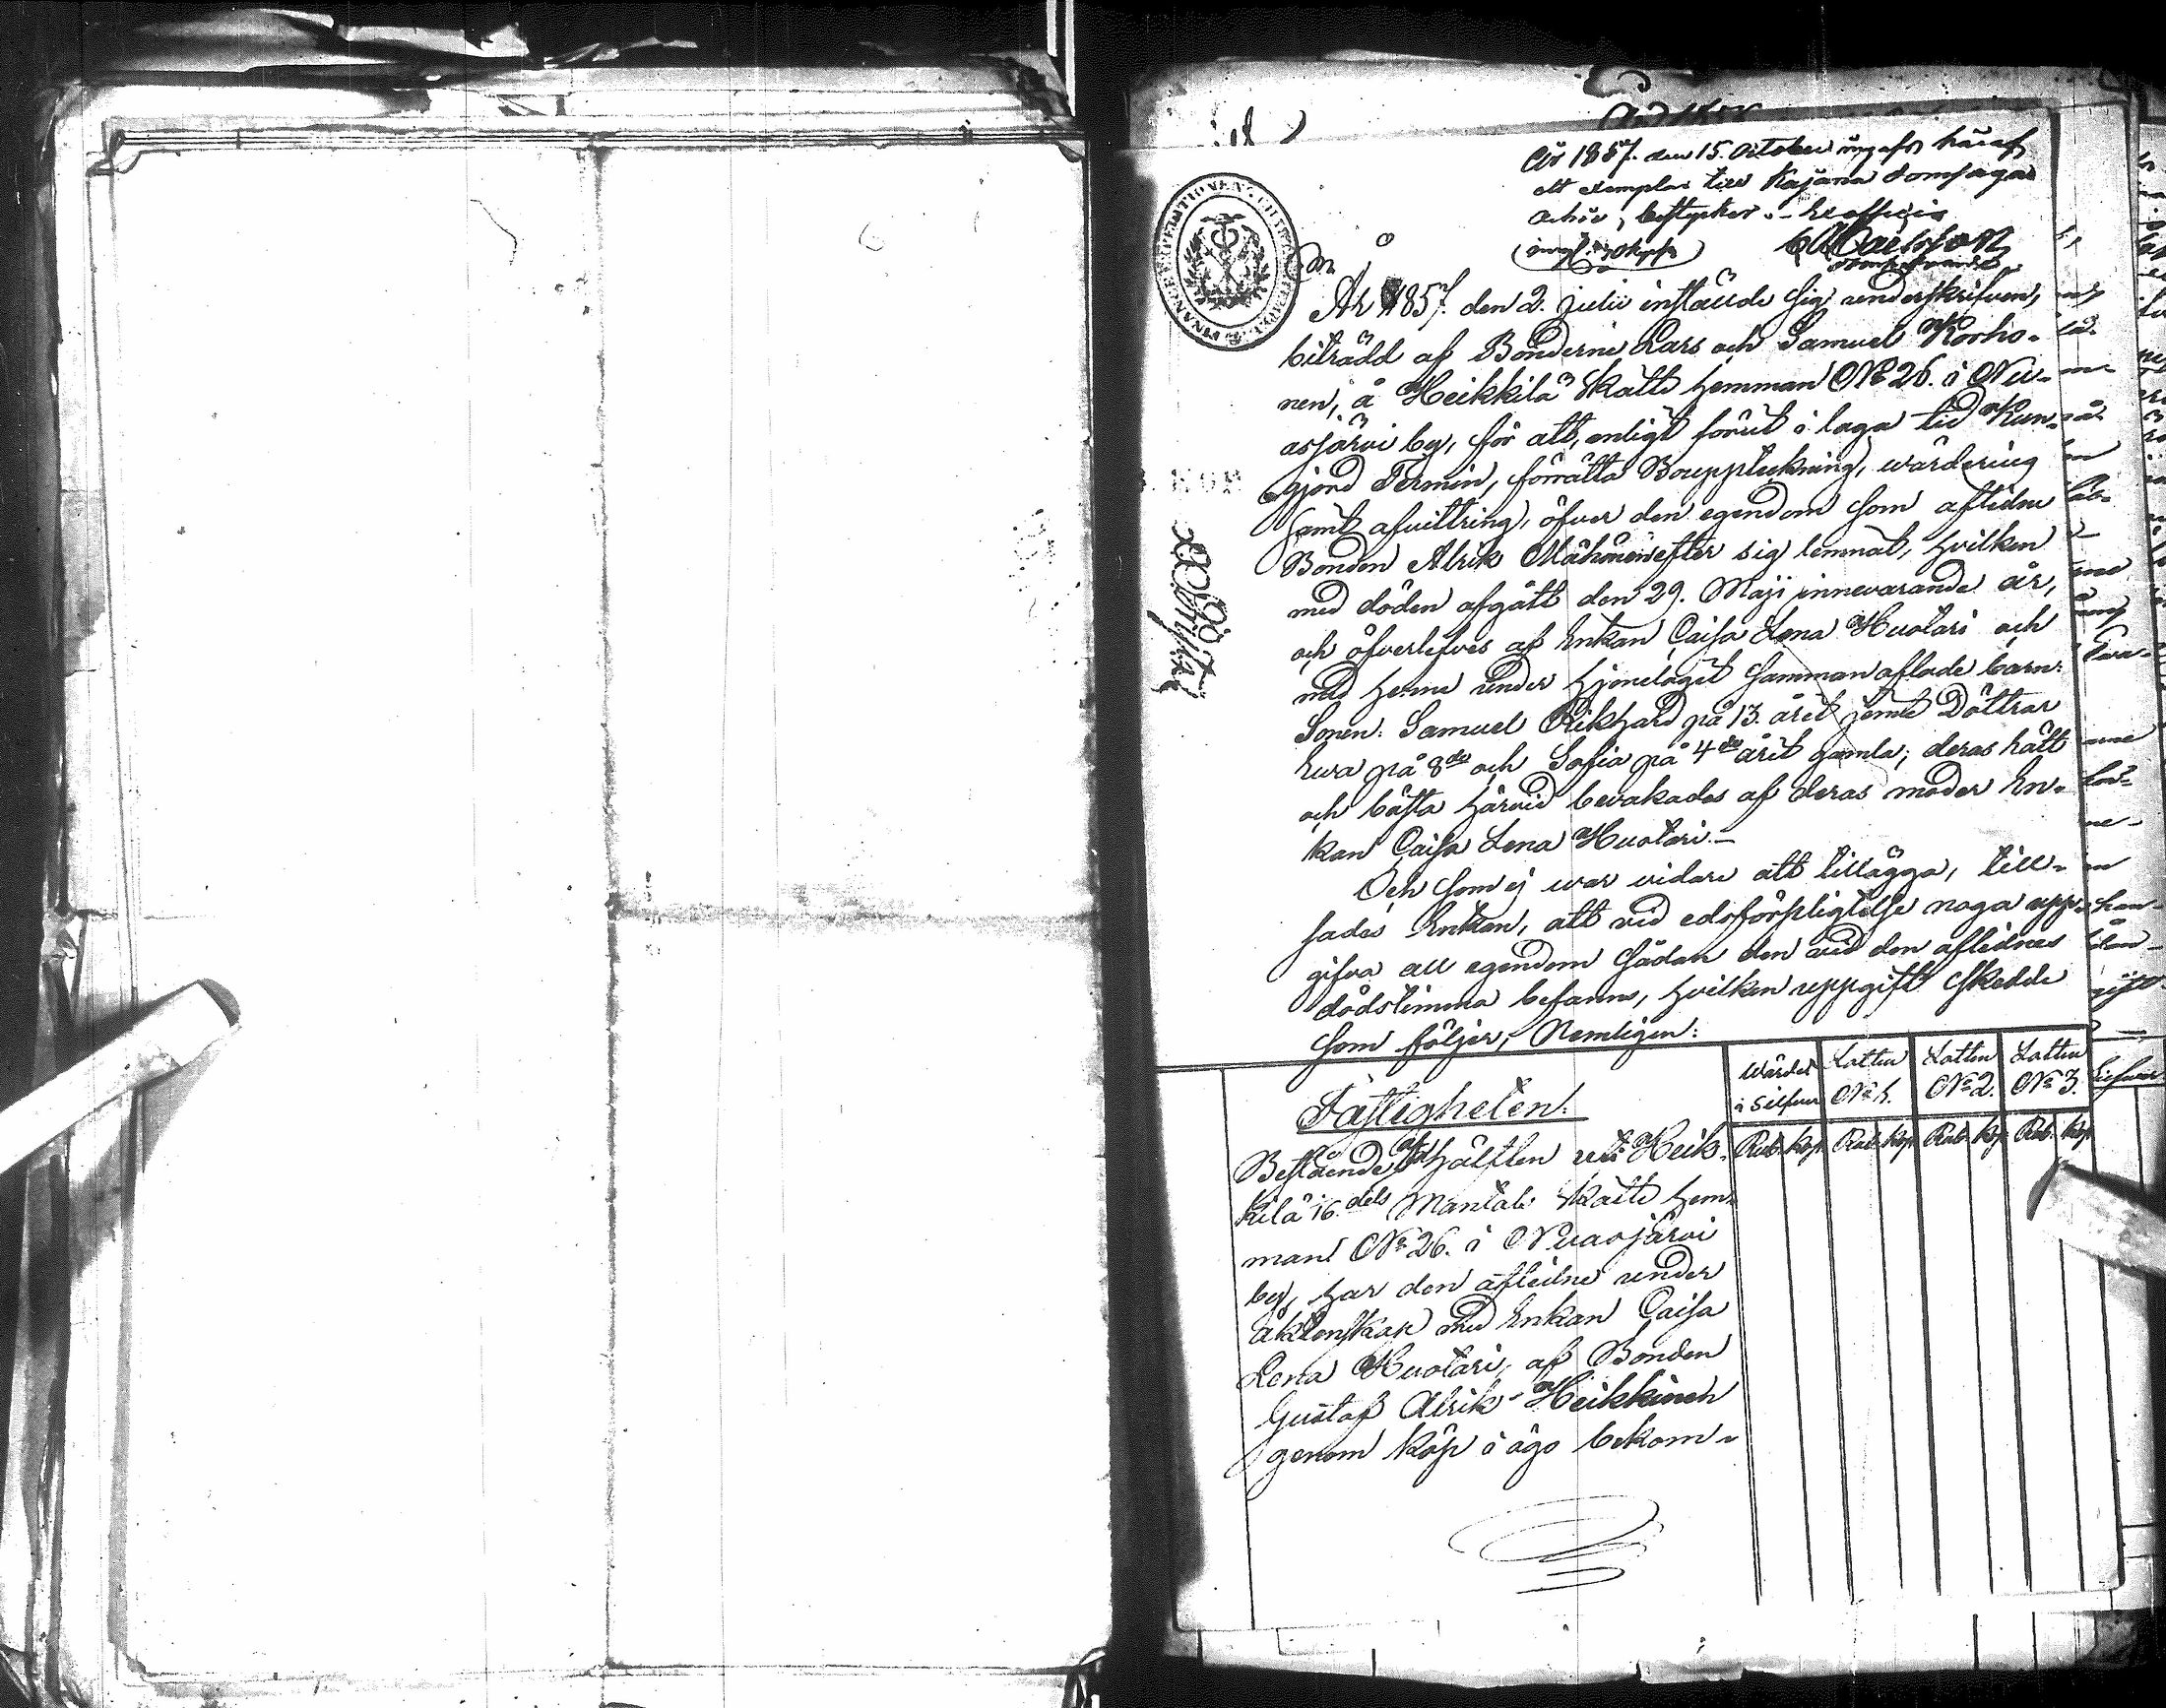 År 1857. den 15. October ingafs häraf
ett exemplar till Kajana Domsagas
Archiv, bestyrker. Ex officio
År 1857. den 2. Julii instälde sig undertskrifven,
biträdd af Bönderne Lars och Samuel Korho-
nen, å Heikkilä Skatte hemman No 26. i Nu-
asjärvi by, för att, enligt förut i laga tid kun-
gjord Termin, förrätta Bouppteckning, wärdering
samt afvittring, öfver den egendom som aflidne
Bonden Alrik Mähönen efter sig lemnat, hvilken
med döden afgått den 29. Maji innevarande år,
och öfverlefves af Enkan Caisa Lena Huotari och
med henne under hjonelaget sammanaflade barn:
Sonen: Samuel Rikhard på 13. året jemte Döttrar
Ewa på 8de och Sofia på 4de året gamla; deras rätt
och bästa härvid bevakades af deras moder En-
kan Caisa Lena Huotari.—
Och som ej war vidare att tillägga, till-
sades Enkan, att vid edsförpligtelse noga upp-
gifva all egendom sådan den vid den aflidnes
dödstimma befanns, hvilken uppgift skedde
som följer, Nemligen:
Wärdet i Silfver
Lotten No 1.
Lotten No 2.
Lotten No 3.
Rub. Kop. Rub. Kop. Rub. Kop. Rub. Kop.
Fastigheten:
Bestående af hälften uti Heik-
kilä 16.dels Mantals Skatte hem-
man No 26. i Nuasjärvi
by, har den aflidne under
äktenskap med Enkan Caisa
Lena Huotari, af Bonden
Gustaf Alrik Heikkinen
genom köp i ägo bekom-